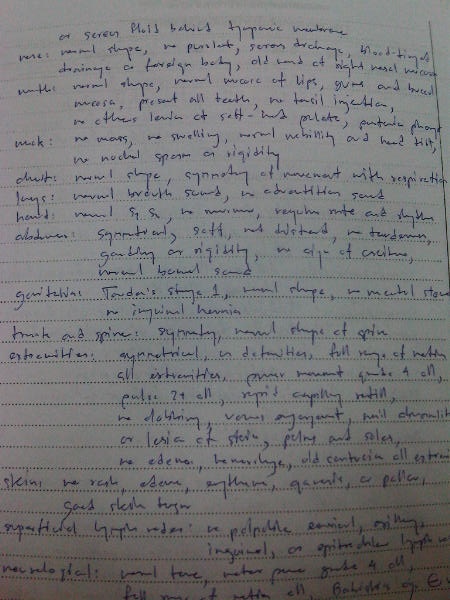 or serous fluid behind tympanic membrane
nose: normal shape, no purulent, serous drainage, blood-tinged
drainage or foreign body, old wound at right nasal mucosa
mouth: normal shape, normal mucosa of lips, gums and buccal
mucosa, present all teeth, no tonsil injection,
no others lesion at soft-hard palate, posterior pharyn
neck: no mass, no swelling, normal mobility and head tilt,
no nuchal spasm or rigidity
chest: normal shape, symmetry of movement with respiration
lungs: normal breath sound, no adventitious sound
heart: normal S1 S2, no murmur, regular rate and rhythm
abdomen: symmetrical, soft, not distend, no tenderness,
guarding or rigidity, no sign of ascites,
normal bowel sound
genitalia: stage 1, normal shape, no meatal
no inguinal hernia
trunk and spine: symmetry, normal shape of spine
extremities: symmetrical, no deformities, full range of motion
all extremities, power movement grade 4 all,
pulse 2+ all, rapid capillary refill,
no clubbing, venous engorgement, nail
or lesion of skin, palms and soles,
no edema, hemorrhage, old contusion all
skin: no rash, edema, erythema, or pallor,
good skin turgor
superficial lymph nodes: no palpable cervical, axillary,
inguinal, or epitrochlear lymph
neurological: normal tone, motor power grade 4 all,
full range of motion all, Babinski